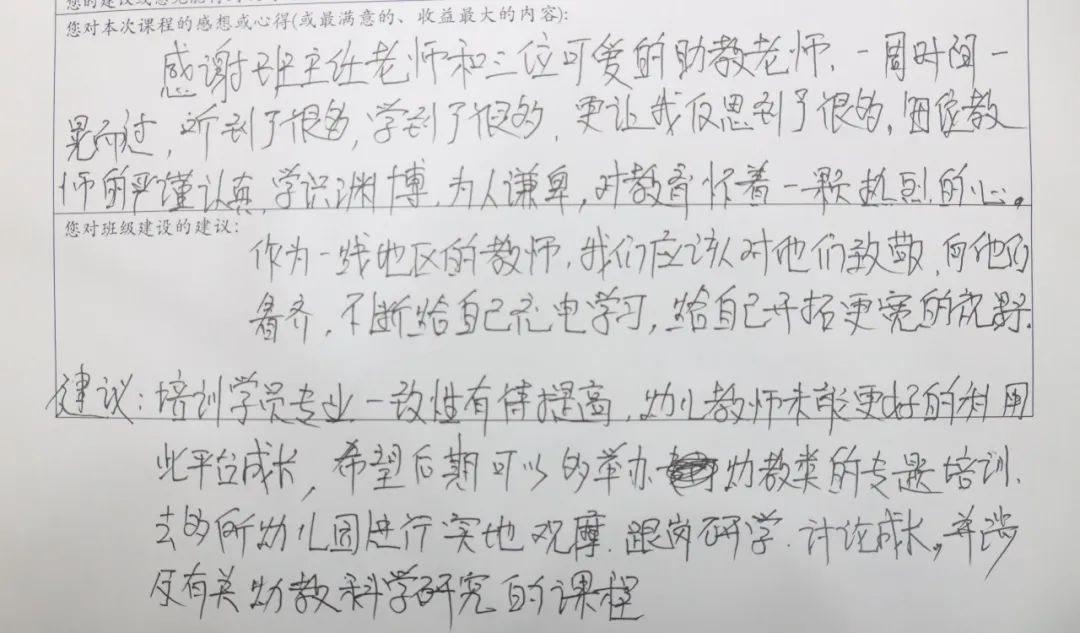 您对本次课程的感想或心得(或最满意的、收益最大的内容):
感谢班主任老师和三位可爱的助教老师.一周时间一
晃而过,听到了很多,学到了很多,更让我反思到了很多,每位教
师的严谨认真,学识渊博.为人谦卑,对教育怀着一颗热烈的心。
您对班级建设的建议:
作为一线地区的教师,我们应该对他们致敬,向他们
看齐,不断给自己充电学习,给自己开拓更宽的视野.
建议:培训学员专业一致性有待提高,幼儿教师未能更好的利用
此平台成长,希望后期可以多举办幼教类的专题培训.
去多所幼儿园进行实地观摩.跟岗研学.讨论成长。并涉
及有关幼教科学研究的课程